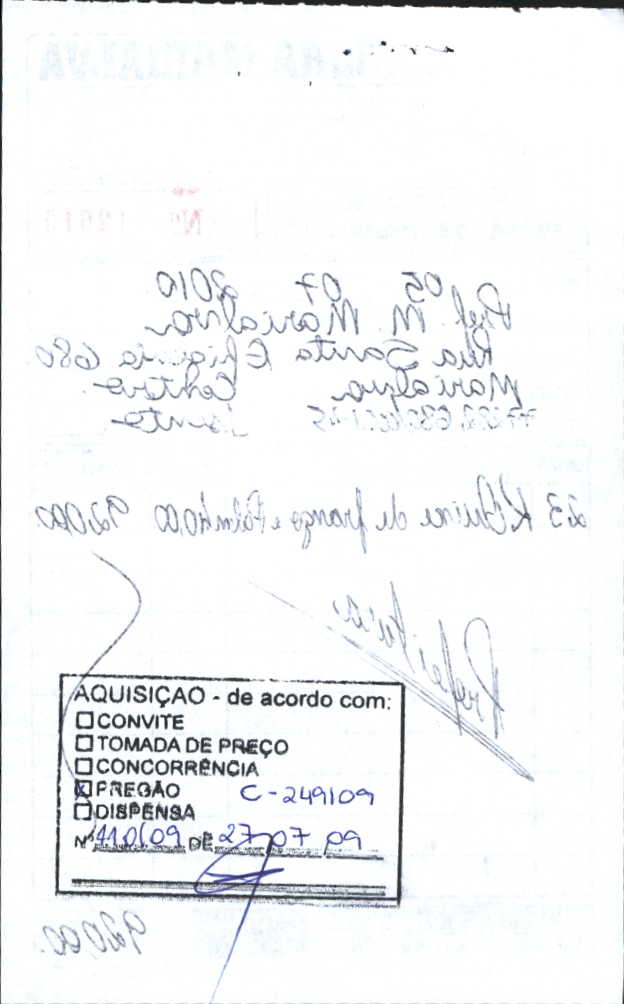 Nº 12013
05 07 2010
Pref. M. Marialva
Rua Santa Efigenia 680
Marialva Centro
isento
23 K de frango e Palmito 40,00 920,00
Prefeitura
AQUISIÇAO - de acordo com:
CONVITE
TOMADA DE PREÇO
CONCORRÊNCIA
PREGÃO C-249/09
DISPENSA
Nº 110/09 DE 27 07 09
920,00